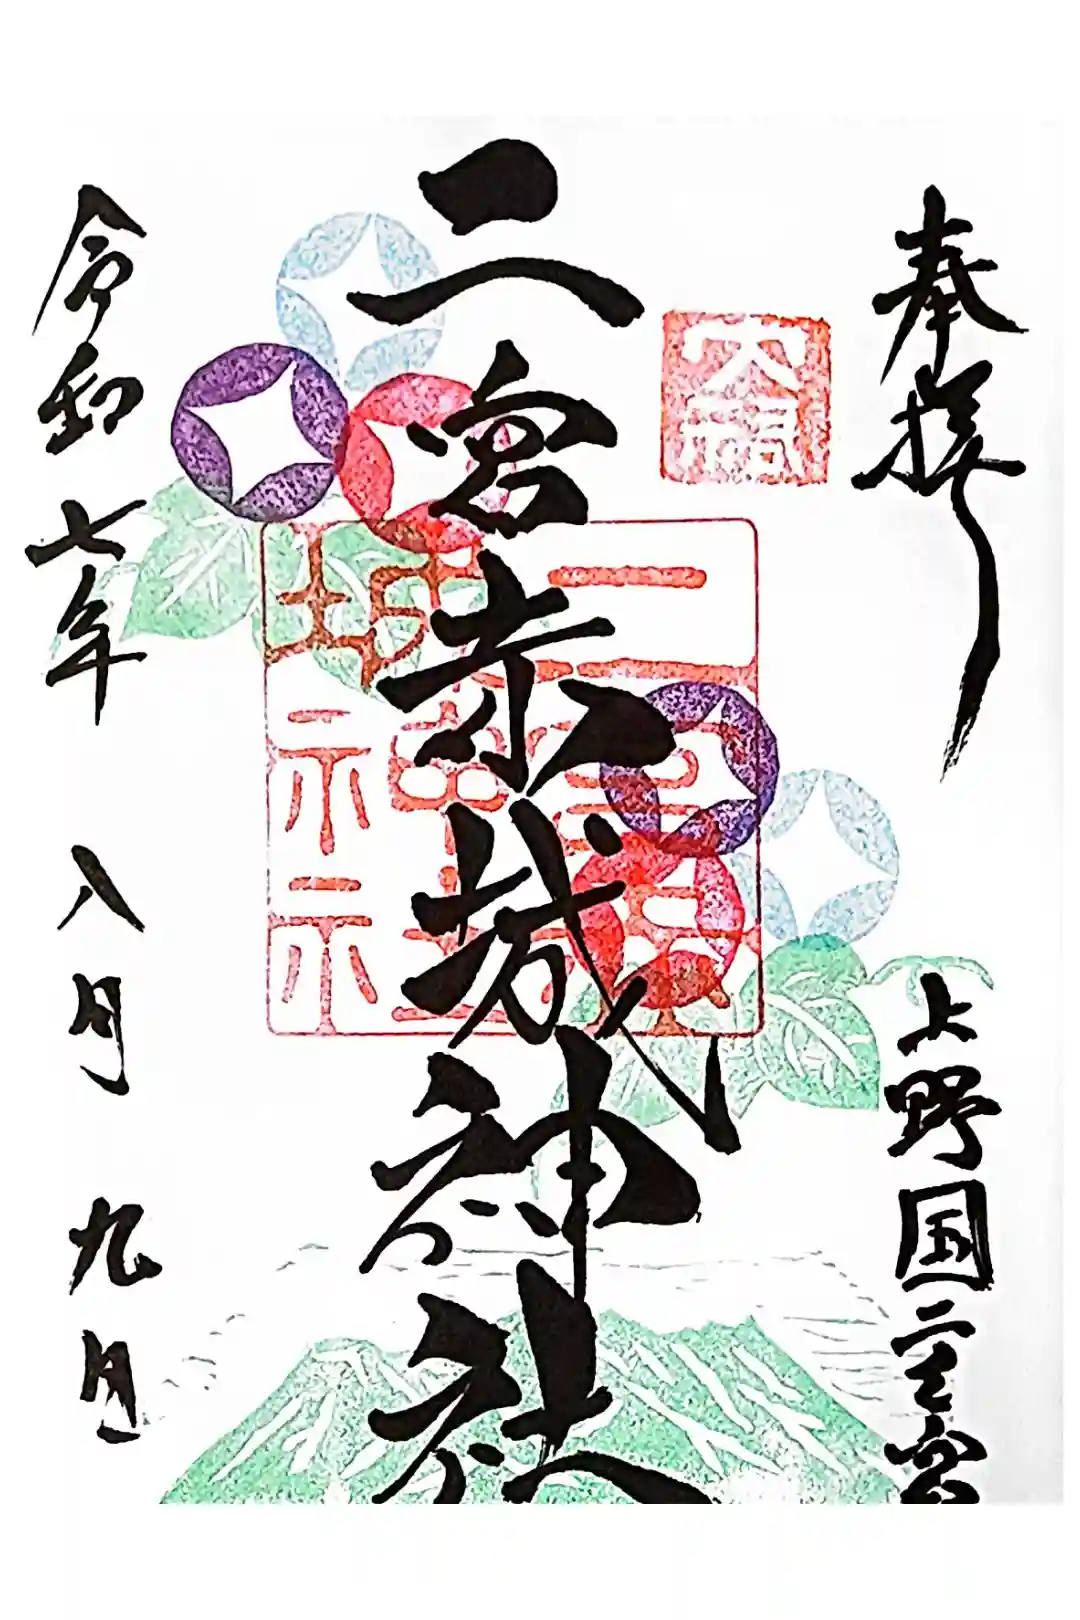 奉拝
上野国二之宮
二宮赤城神社
二宮赤
城神社
令和七年八月九日